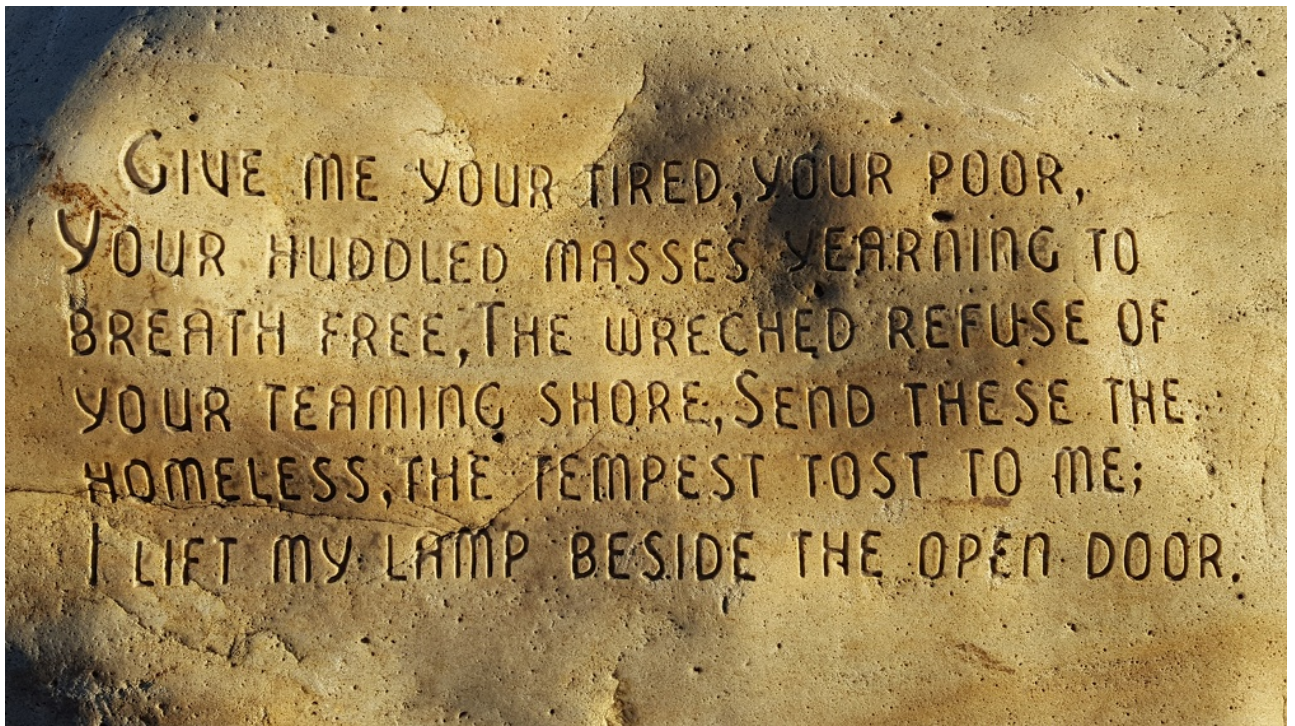 GIVE ME YOUR TIRED, YOUR POOR,
YOUR HUDDLED MASSES YEARNING TO
BREATH FREE, THE WRECHED REFUSE OF
YOUR TEAMING SHORE, SEND THESE THE
HOMELESS, THE TEMPEST TOST TO ME;
I LIFT MY LAMP BESIDE THE OPEN DOOR.